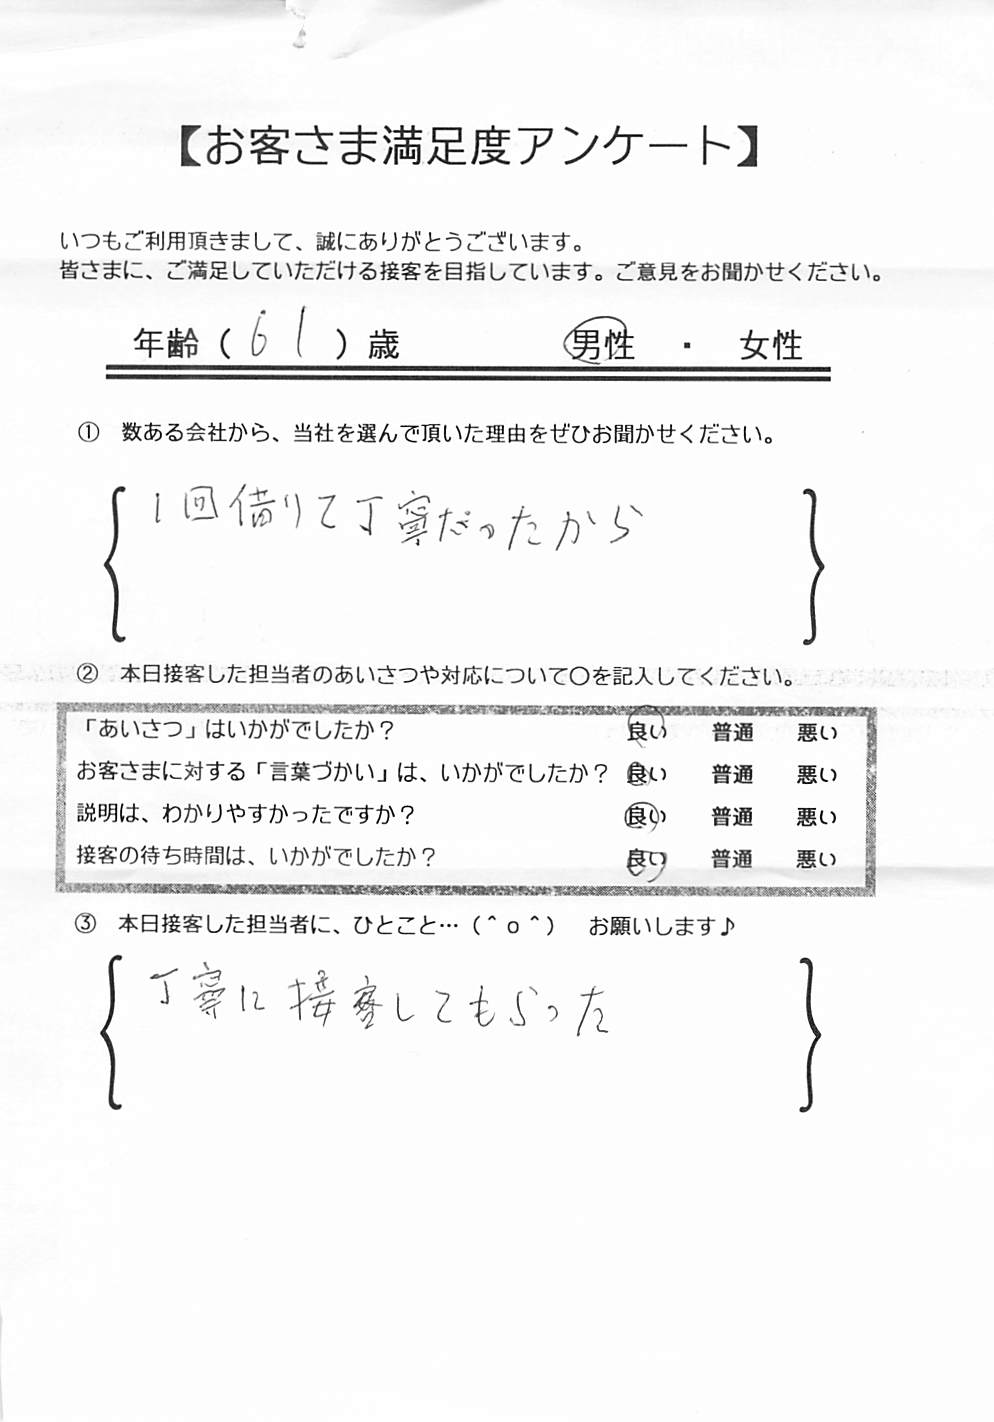 【お客さま満足度アンケート】
いつもご利用頂きまして、誠にありがとうございます。
皆さまに、ご満足していただける接客を目指しています。ご意見をお聞かせください。
年齢（ 61 ）歳　男性　・　女性
①　数ある会社から、当社を選んで頂いた理由をぜひお聞かせください。
1回借りて丁寧だったから
②　本日接客した担当者のあいさつや対応について〇を記入してください。
「あいさつ」はいかがでしたか？　良い　普通　悪い
お客さまに対する「言葉づかい」は、いかがでしたか？　良い　普通　悪い
説明は、わかりやすかったですか？　良い　普通　悪い
接客の待ち時間は、いかがでしたか？　良い　普通　悪い
③　本日接客した担当者に、ひとこと…（＾ｏ＾）　お願いします♪
丁寧に接客してもらった